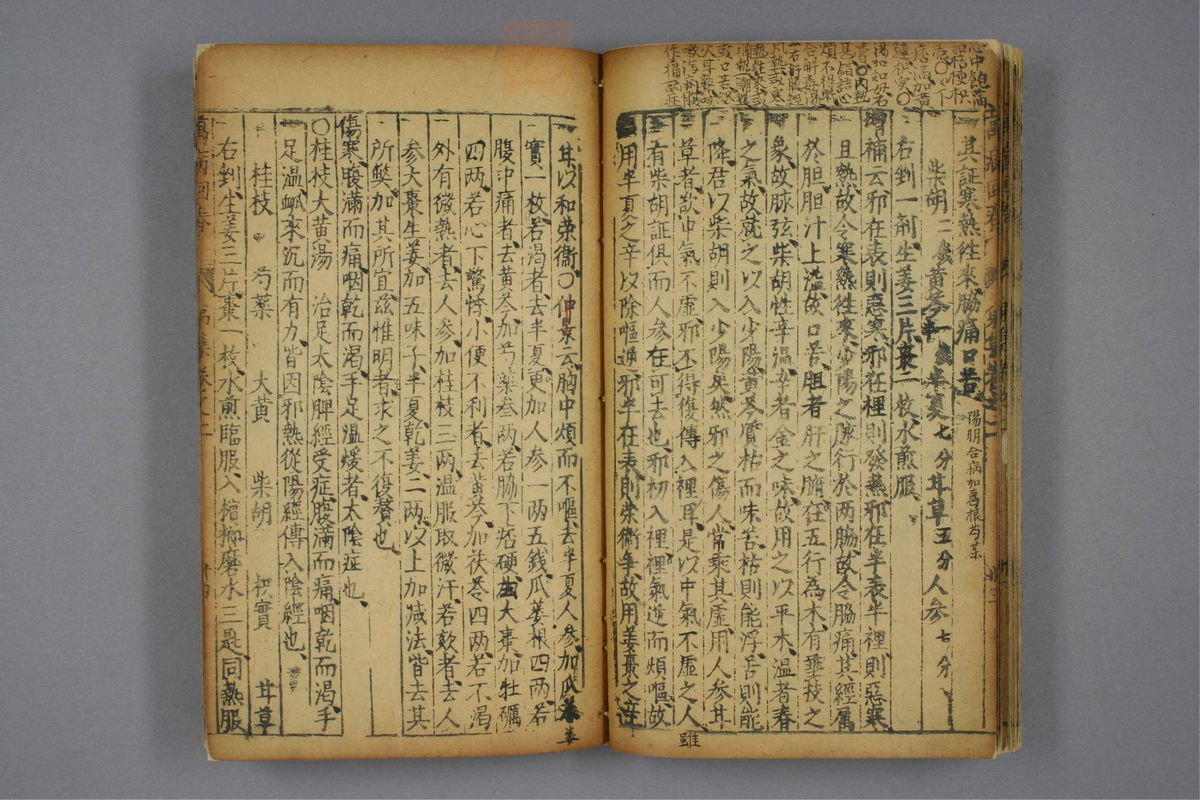 其証寒熱徃來脇痛口苦 陽明合病加葛根芍藥
柴胡二錢黃芩錢半半夏七分甘草五分人參七分
右剉一劑生姜三片棗一枚水煎服
補云邪在表則惡寒邪在裡則發熱邪在半表半裡則惡寒
且熱故令寒熱徃來少陽之脉行於兩脇故令脇痛其經属
於胆胆汁上溢故口苦胆者肝之腑在五行為木有埀枝之
象故脉弦柴胡性辛溫辛者金之味故用之以平木溫者春
之氣故就之以入少陽黃芩質枯而味苦枯則能浮苦則能
降君以柴胡則入少陽矣然邪之傷人常乘其虛用人參甘
草者欲中氣不虛邪不得復傳入裡耳是以中氣不虛之人
有柴胡証俱而人參在可去也邪初入裡裡氣逆而煩嘔故
用半夏之辛以除嘔逆邪半在表則荣衛爭故用姜棗之辛
雖
甘以和荣衛〇仲景云胸中煩而不嘔去半夏人參加瓜蔞
實一枚若渴者去半夏更加人参一兩五錢瓜蒌根四两若
腹中痛者去黄芩加芍藥叁两若脇下痞硬去大棗加牡礪
四两若心下驚悸小便不利者去黃芩加茯苓四两若不渴
外有微熱者去人参加桂枝三两温服取微汗若欬者去人
参大棗生姜加五味子半夏乾姜二两以上加减法皆去其
所獘加其所宜兹惟明者求之不復贅也
傷寒腹滿而痛咽乾而渴手足温煖者太陰症也
〇桂枝大黃湯 治足太陰脾經受症腹滿而痛咽乾而渴手
足温脉來沉而有力皆因邪熱從陽經傳入陰經也
桂枝 芍藥 大黃 柴胡 枳實 甘草
右剉生姜三片棗一枚水煎臨服入梹榔磨水三匙同熱服
萬病回春